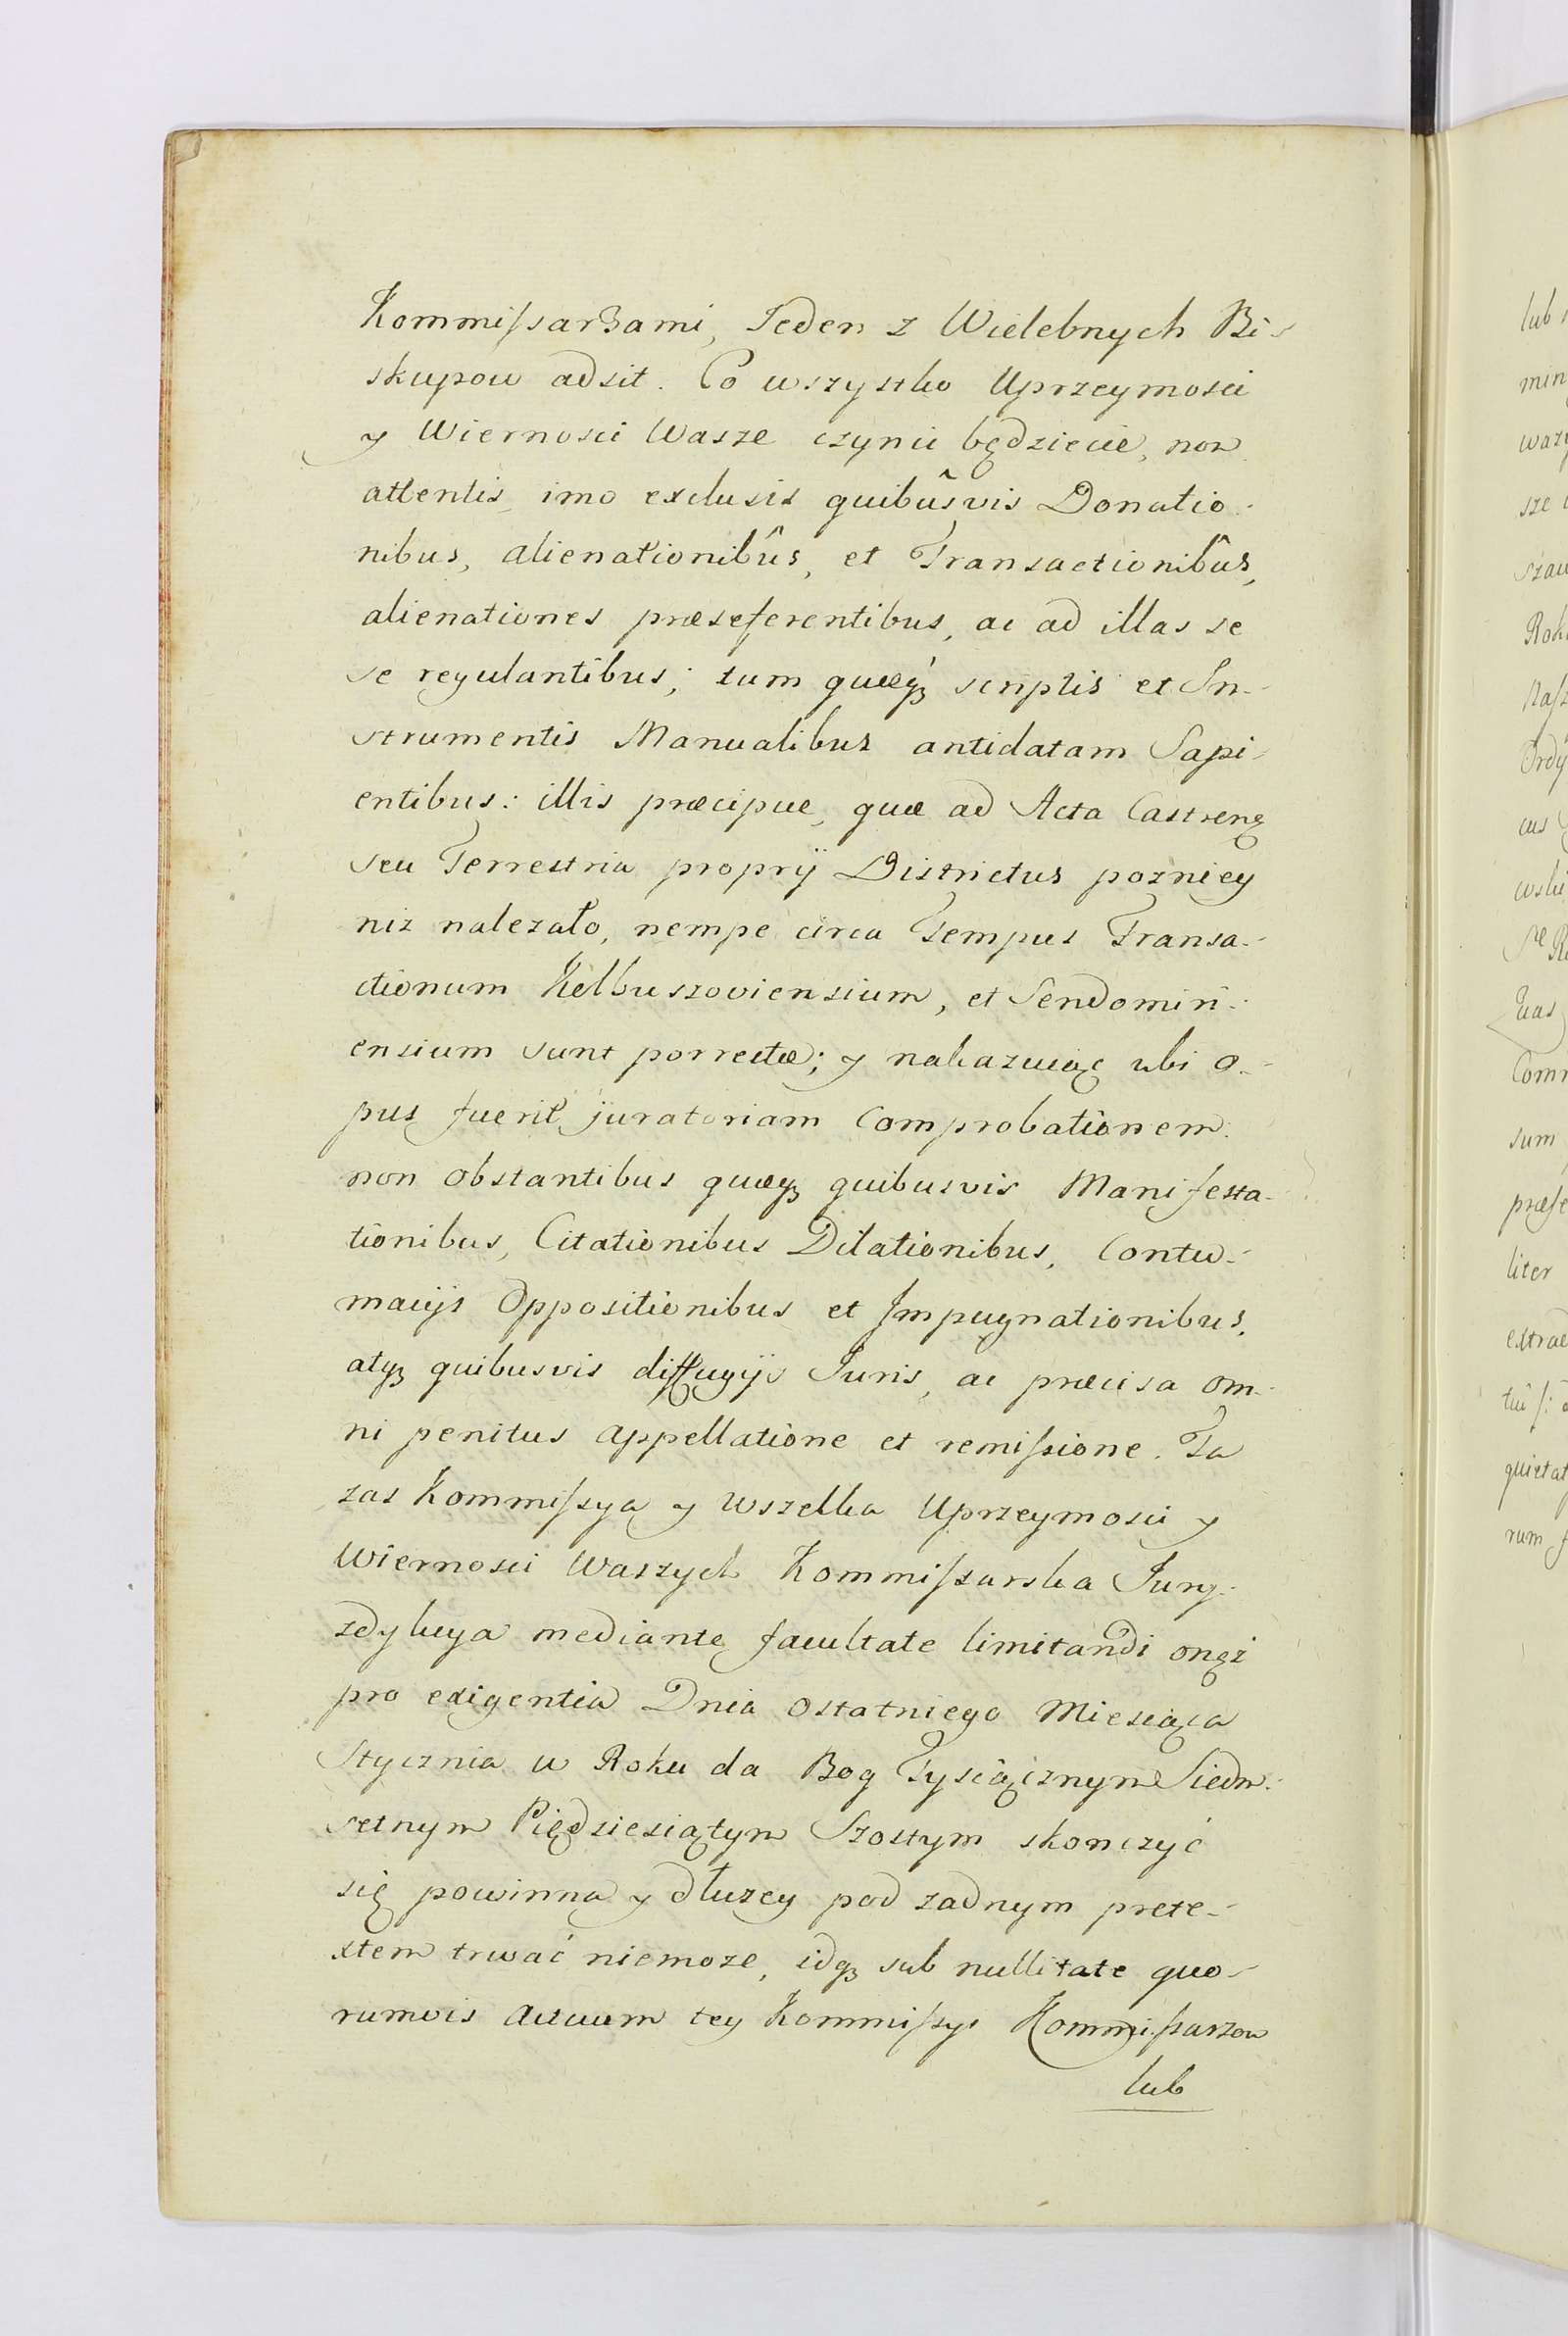 Kommiſsarzami, Jeden z Wielebnych Bi-
skupow adsit. Co wszystko Uprzeymosci
y Wiernosci Wasze czynic będziecie, non
attentis imo exclusis quibûsvis Donatio-
nibus, alienationibûs, et Transactionibûs,
alienationes præseferentibus, ac ad illas se
se regulantibus; tum quæqз scriptis et In-
strumentis Manualibus antidatam Sapi-
entibus: illis præcipue, quæ ad Acta Castreną
seu Terrestria proprÿ Districtus pozniey
niz nalezało, nempe circa Tempus Transa-
ctionum Kolbuszoviensium, et Sendomiri-
ensium sunt porrectæ; y nakazuiąc ubi o-
pus fuerit juratoriam Comprobationem.
non obstantibus quæqз quibusvis Manifesta-
tionibus, Citationibus Dilationibus, Contu-
macijs Oppositionibus et Impugnationibus,
atqз quibusvis diffugijs Juris, ac præcisa om-
ni penitus appellatione et remiſsione. Ta
zas Kommiſsya y wszelka Uprzeymosci y
Wiernosci Waszych Kommiſsarska Jury-
zdykcya mediante facultate limitandi onęż
pro exigentia Dnia ostatniego Miesiąca
Stycznia w Roku da Bog Tysiącznym Siedm-
setnym Piędziesiątym Szostym skonczyć
się powinna y dłuzey pod zadnym prete-
xtem trwać niemoze, idqз sub nullitate quo-
rumvis actuum tey Kommiſsyi Kommiſsarzow
lub
lub
min
sze
Rok
Naſz
cus
Comm
sum
præſe
liter
extrad
quietat
rum